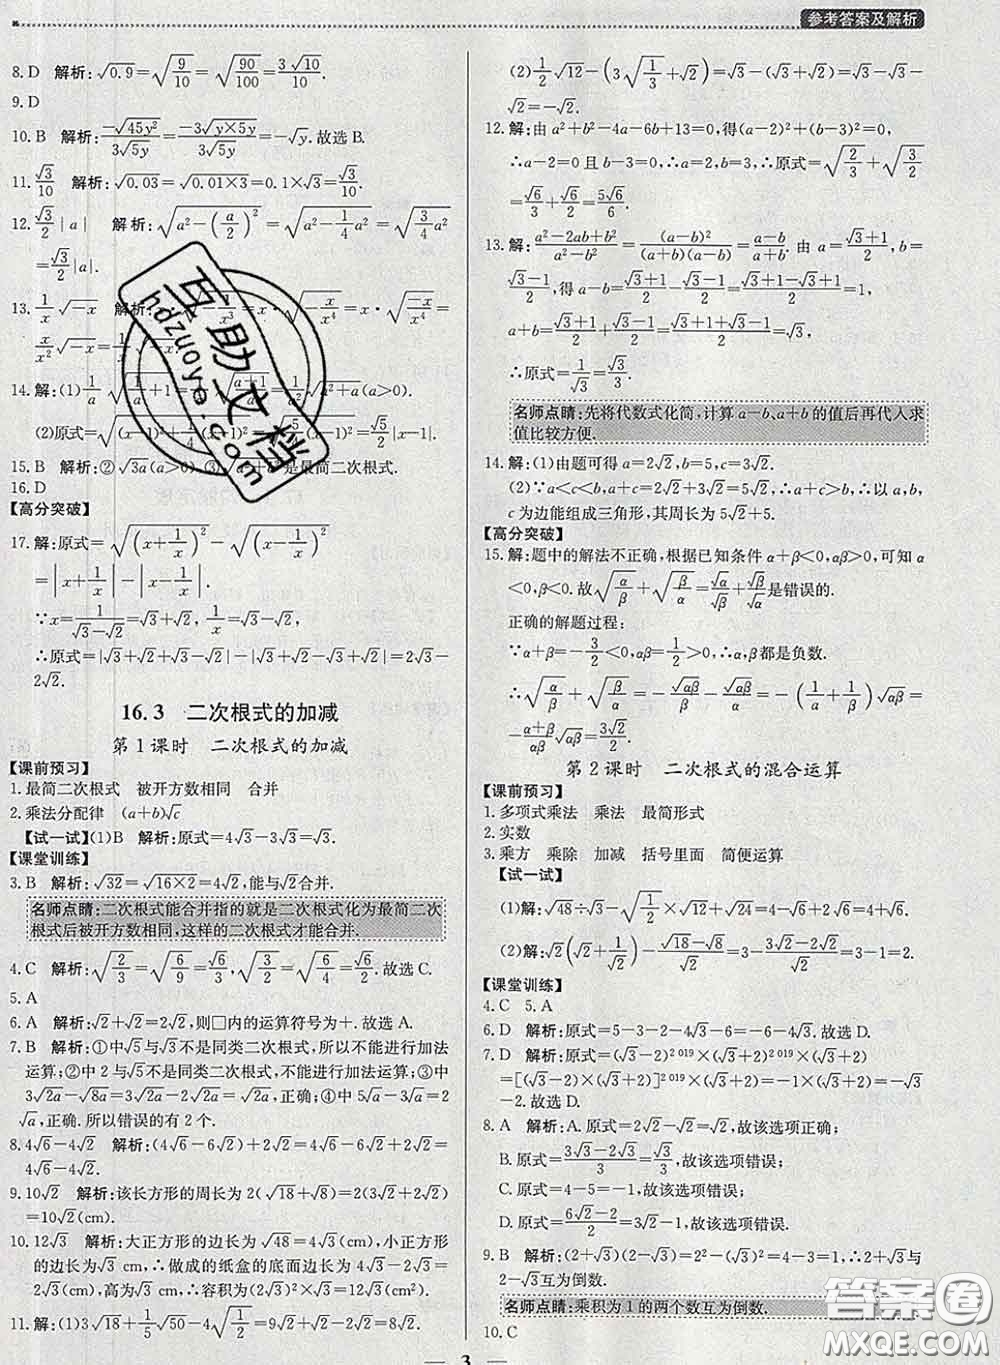 参考答案及解析
8. D 解析:√0.9=√(9/10)=√(90/100)=3√10/10.
9. D
10. B 解析:-√45y²/3√5y=-3√(y×5y)/3√5y=-√y.故选 B.
11. √3/10 解析:√0.03=√(0.01×3)=0.1×√3=√3/10.
12. √3/2|a| 解析:√(a²-(a/2)²)=√(a²-1/4a²)=√(3/4a²)
=√3/2|a|.
13. 1/x√-x 解析:
14. 解:(1)
(a>0).
(2)原式=
|x-1|.
15. B 解析:②√3a(a>0) ③ 是最简二次根式.
16. D
【高分突破】
17. 解:原式=√(x+1/x)²-√(x-1/x)²
=|x+1/x|-|x-1/x|.
∵x=1/(√3-√2)=√3+√2, 1/x=√3-√2,
∴原式=|√3+√2+√3-√2|-|√3+√2-√3+√2|=2√3-
2√2.
16.3 二次根式的加减
第 1 课时 二次根式的加减
【课前预习】
1. 最简二次根式 被开方数相同 合并
2. 乘法分配律 (a+b)√c
【试一试】(1)B 解析:原式=4√3-3√3=√3.
【课堂训练】
3. B 解析:√32=√(16×2)=4√2,能与√2合并.
名师点睛:二次根式能合并指的就是二次根式化为最简二次
根式后被开方数相同,这样的二次根式才能合并.
4. C 解析:√(2/3)=√(6/9)=√6/3,√(3/2)=√(6/4)=√6/2.故选 C.
5. A
6. A 解析:√2+√2=2√2,则□内的运算符号为+.故选 A.
7. B 解析:①中√5与√3不是同类二次根式,所以不能进行加法
运算;②中 2与√5不是同类二次根式,不能进行加法运算;③中
3√2a-√8a=3√2a-2√2a=√2a,正确;④中√16a-√4a=2
√a,正确.所以错误的有 2 个.
8. 4√6-4√2 解析:(4√6-6√2)+2√2=4√6-6√2+2√2=
4√6-4√2.
9. 10√2 解析:该长方形的周长为 2(√18+√8)=2(3√2+2√2)
=10√2(cm).
10. 12√3 解析:大正方形的边长为√48=4√3(cm),小正方形
的边长为√3 cm.∴做成的纸盒的底面边长为 4√3-2√3=
2√3(cm),高为√3 cm.∴容积为(2√3)²×√3=12√3(cm³).
11. 解:(1)3√18+1/5√50-4√(1/2)=9√2+√2-2√2=8√2.
(2)1/2√12-(3√(1/3)+√2)=√3-(√3+√2)=√3-√3-
√2=-√2.
12. 解:由 a²+b²-4a-6b+13=0,得(a-2)²+(b-3)²=0,
∴a-2=0 且 b-3=0,∴a=2,b=3,∴原式=√(2/3)+√(3/2)=
√6/3+√6/2=5√6/6.
13. 解:(a²-2ab+b²)/(a²-b²)=(a-b)²/(a+b)(a-b)=(a-b)/(a+b).由 a=(√3+1)/2,b=
(√3-1)/2,得 a-b=(√3+1)/2-(√3-1)/2=(√3+1-√3+1)/2=1,
a+b=(√3+1)/2+(√3-1)/2=(√3+1+√3-1)/2=√3,
∴原式=1/√3=√3/3.
名师点睛:先将代数式化简,计算 a-b、a+b 的值后再代入求
值比较方便.
14. 解:(1)由题可得 a=2√2,b=5,c=3√2.
(2)∵a<c<b,a+c=2√2+3√2=5√2,∴a+c>b,∴以 a,b,
c 为边能组成三角形,其周长为 5√2+5.
【高分突破】
15. 解:题中的解法不正确,根据已知条件 α+β<0,αβ>0,可知 α
<0,β<0.故√(α/β)+√(β/α)=√α/√β+√β/√α是错误的.
正确的解题过程:
∵α+β=-3/2<0,αβ=1/3>0,∴α,β都是负数.
∴√(α/β)+√(β/α)=-√αβ/β-√αβ/α=-(1/α+1/β)√αβ=
-(α+β)/αβ·√αβ=3√3/2.
第 2 课时 二次根式的混合运算
【课前预习】
1. 多项式乘法 乘法 最简形式
2. 实数
3. 乘方 乘除 加减 括号里面 简便运算
【试一试】
(1)解:√48÷√3-√(1/2)×√12+√24=4-√6+2√6=4+√6.
(2)解:√2(√2+1/√2)-(√18-√8)/√2=3-(3√2-2√2)/√2=3-1=2.
【课堂训练】
4. C 5. A
6. D 解析:原式=5-3-2-4√3-6=-6-4√3.故选 D.
7. D 解析:原式=(√3-2)²⁰¹⁹×(√3+2)²⁰¹⁹×(√3+2)
=[(√3-2)×(√3+2)]²⁰¹⁹×(√3+2)=-1×(√3+2)=-√3
-2.故选 D.
8. A 解析:A.原式=2√2-√2=√2,故该选项正确;
B. 原式=(3√3-2√3)/3=√3/3,故该选项错误;
C. 原式=4-5=-1,故该选项错误;
D. 原式=(6√2-2)/2=3√2-1,故该选项错误.
9. B 解析:(2+√3)(2-√3)=2²-(√3)²=4-3=1,∴2+√3与
2-√3互为倒数.
名师点睛:乘积为 1 的两个数互为倒数.
10. C
3
互助文档
hdzuoye.com
答案圈
MXQE.COM